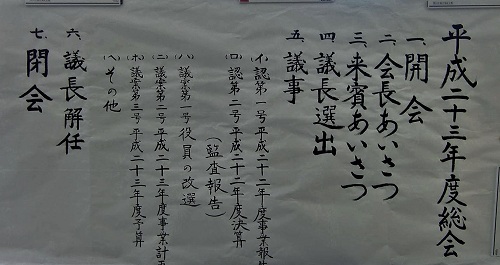 平成二十三年度総会
一、開会
二、会長あいさつ
三、来賓あいさつ
四、議長選出
五、議事
(イ)認第一号平成二十二年度事業報告
(ロ)認第二号平成二十二年度決算
(監査報告)
(ハ)議案第一号役員の改選
(ニ)議案第二号平成二十三年度事業計画
(ホ)議案第三号平成二十三年度予算
(ヘ)その他
六、議長解任
七、閉会